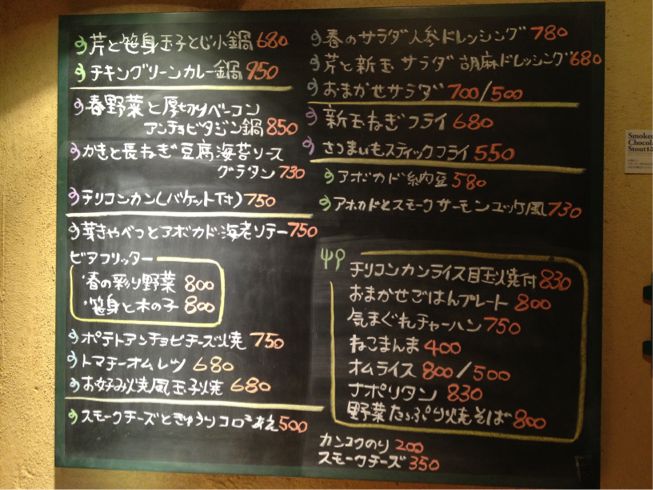 芹と笹身玉子とじ小鍋 680
チキングリーンカレー鍋 950
春野菜と厚切りベーコン
アンチョビタジン鍋 850
かきと長ねぎ豆腐海苔ソース
グラタン 730
チリコンカン(バケット付) 750
芽きゃべつとアボカド海老ソテー 750
ビアフリッター
・春の彩り野菜 800
・笹身と木の子 800
ポテトアンチョビチーズ焼 750
トマチーオムレツ 680
お好み焼風玉子焼 680
スモークチーズときゅうりコロコロ和え 500
春のサラダ人参ドレッシング 780
芹と新玉サラダ 胡麻ドレッシング 680
おまかせサラダ 700/500
新玉ねぎフライ 680
さつまいもスティックフライ 550
アボカド納豆 580
アボカドとスモークサーモンユッケ風 730
チリコンカンライス目玉焼付 830
おまかせごはんプレート 800
気まぐれチャーハン 750
ねこまんま 400
オムライス 800/500
ナポリタン 830
野菜たっぷり焼そば 800
カンコクのり 200
スモークチーズ 350
Smoked
Chocola
Stout